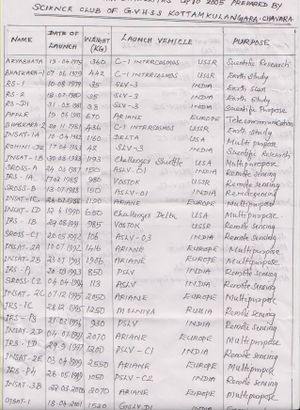 2005 PREPARED BY
SCIENCE CLUB OF G.V.H.S.S KOTTAMKULANGARA-CHAVARA
NAME DATE OF LAUNCH WEIGHT (KG) LAUNCH VEHICLE PURPOSE
ARYABHATA 19-04-1975 360 C-1 INTERCOSMOS USSR Scientific Research
BHASKARA-I 07-06-1979 442 C-1 INTERCOSMOS USSR Earth Study
RS-1 10-08-1979 35 SLV-3 INDIA Earth
RS-1 18-07-1980 35 SLV-3 INDIA Earth Study
RS-D1 31-05-1981 38 SLV-3 INDIA Scientific Purpose
APPLE 19-06-1981 670 ARIANE EUROPE Telecommunication
BHASKARA-2 1981 436 C-1 INTERCOSMOS USSR Earth study
INSAT-1A 10-04-1982 1160 DELTA USA Multi purpose
ROHINI-D2 1983 42 SLV-3 INDIA Scientific Research
INSAT-1B 30-08-1983 1193 Challenger Shuttle USA Multipurpose
SROSS-A 24-03-1987 150 ASLV-D1 INDIA Remote sensing
IRS-1A 1988 980 VOSTOK USSR Remote sensing
SROSS-B 13-07-1988 150 ASLV-D1 INDIA
INSAT-1C 1988 1190 ARIANE EUROPE Multipurpose
INSAT-1D 12-6-1990 680 Challenger Delta USA Multipurpose
IRS-1B 29-08-1991 985 VOSTOK USSR Remote sensing
SROSS-C1 20-05-1992 106 ASLV-03 INDIA Remote Sensing
INSAT-2A 10-07-1992 1416 ARIANE EUROPE Multipurpose
INSAT-2B 23-07-1993 1906 ARIANE EUROPE Multipurpose
IRS-P1 20-09-1993 850 PSLV INDIA Remote Sensing
SROSS-C2 04-05-1994 113 PSLV INDIA Remote Sensing
INSAT-2C 07-12-1995 2050 ARIANE EUROPE Multipurpose
IRS-1C 28-12-1995 1250 MOLNIYA RUSSIA Remote Sensing
IRS-P3 21-03-1996 930 PSLV INDIA Remote Sensing
INSAT-2D 04-06-1997 2070 ARIANE EUROPE Multipurpose
IRS-1D 29-9-1997 1200 PSLV-C1 INDIA Multipurpose
INSAT-2E 03-04-1999 2550 ARIANE EUROPE Multipurpose
IRS-P4 26-05-1999 1050 PSLV-C2 INDIA Remote Sensing
INSAT-3B 22-03-2000 2070 ARIANE EUROPE Multipurpose
GSAT-1 18-04-2001 1530 GSLV-D1 INDIA